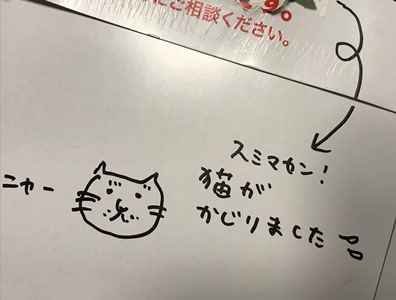 です。
にご相談ください。
スミマセン!
猫が
かじりました
ニャー